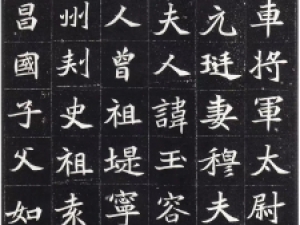 車將軍太尉
元珽妻穆夫
夫人諱玉容
人曾祖堤寧
州刾史祖袁
昌國子父如